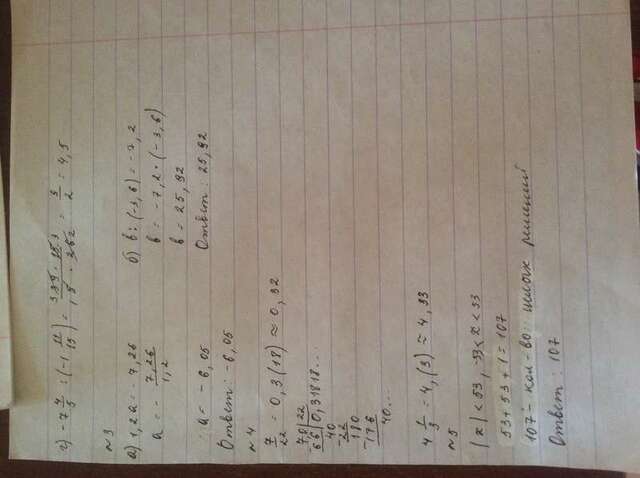 г) -7 4/5 : (-1 11/15) = 3 39 · 15 3 / 1 5 · 26 2 = 9/2 = 4,5
~3
а) 1,2a = -7,26
a = - 7,26/1,2
a = -6,05
Ответ: -6,05
б) в : (-3,6) = -7,2
в = -7,2 · (-3,6)
в = 25,92
Ответ: 25,92
~4
7/22 = 0,3(18) ≈ 0,32
7,0 | 22
-66 | 0,31818...
40
-22
180
-176
40...
4 1/3 = 4,(3) ≈ 4,33
~5
|x| < 53, -53 < x < 53
53 + 53 + 1 = 107
107 - кол-во целых решений
Ответ: 107